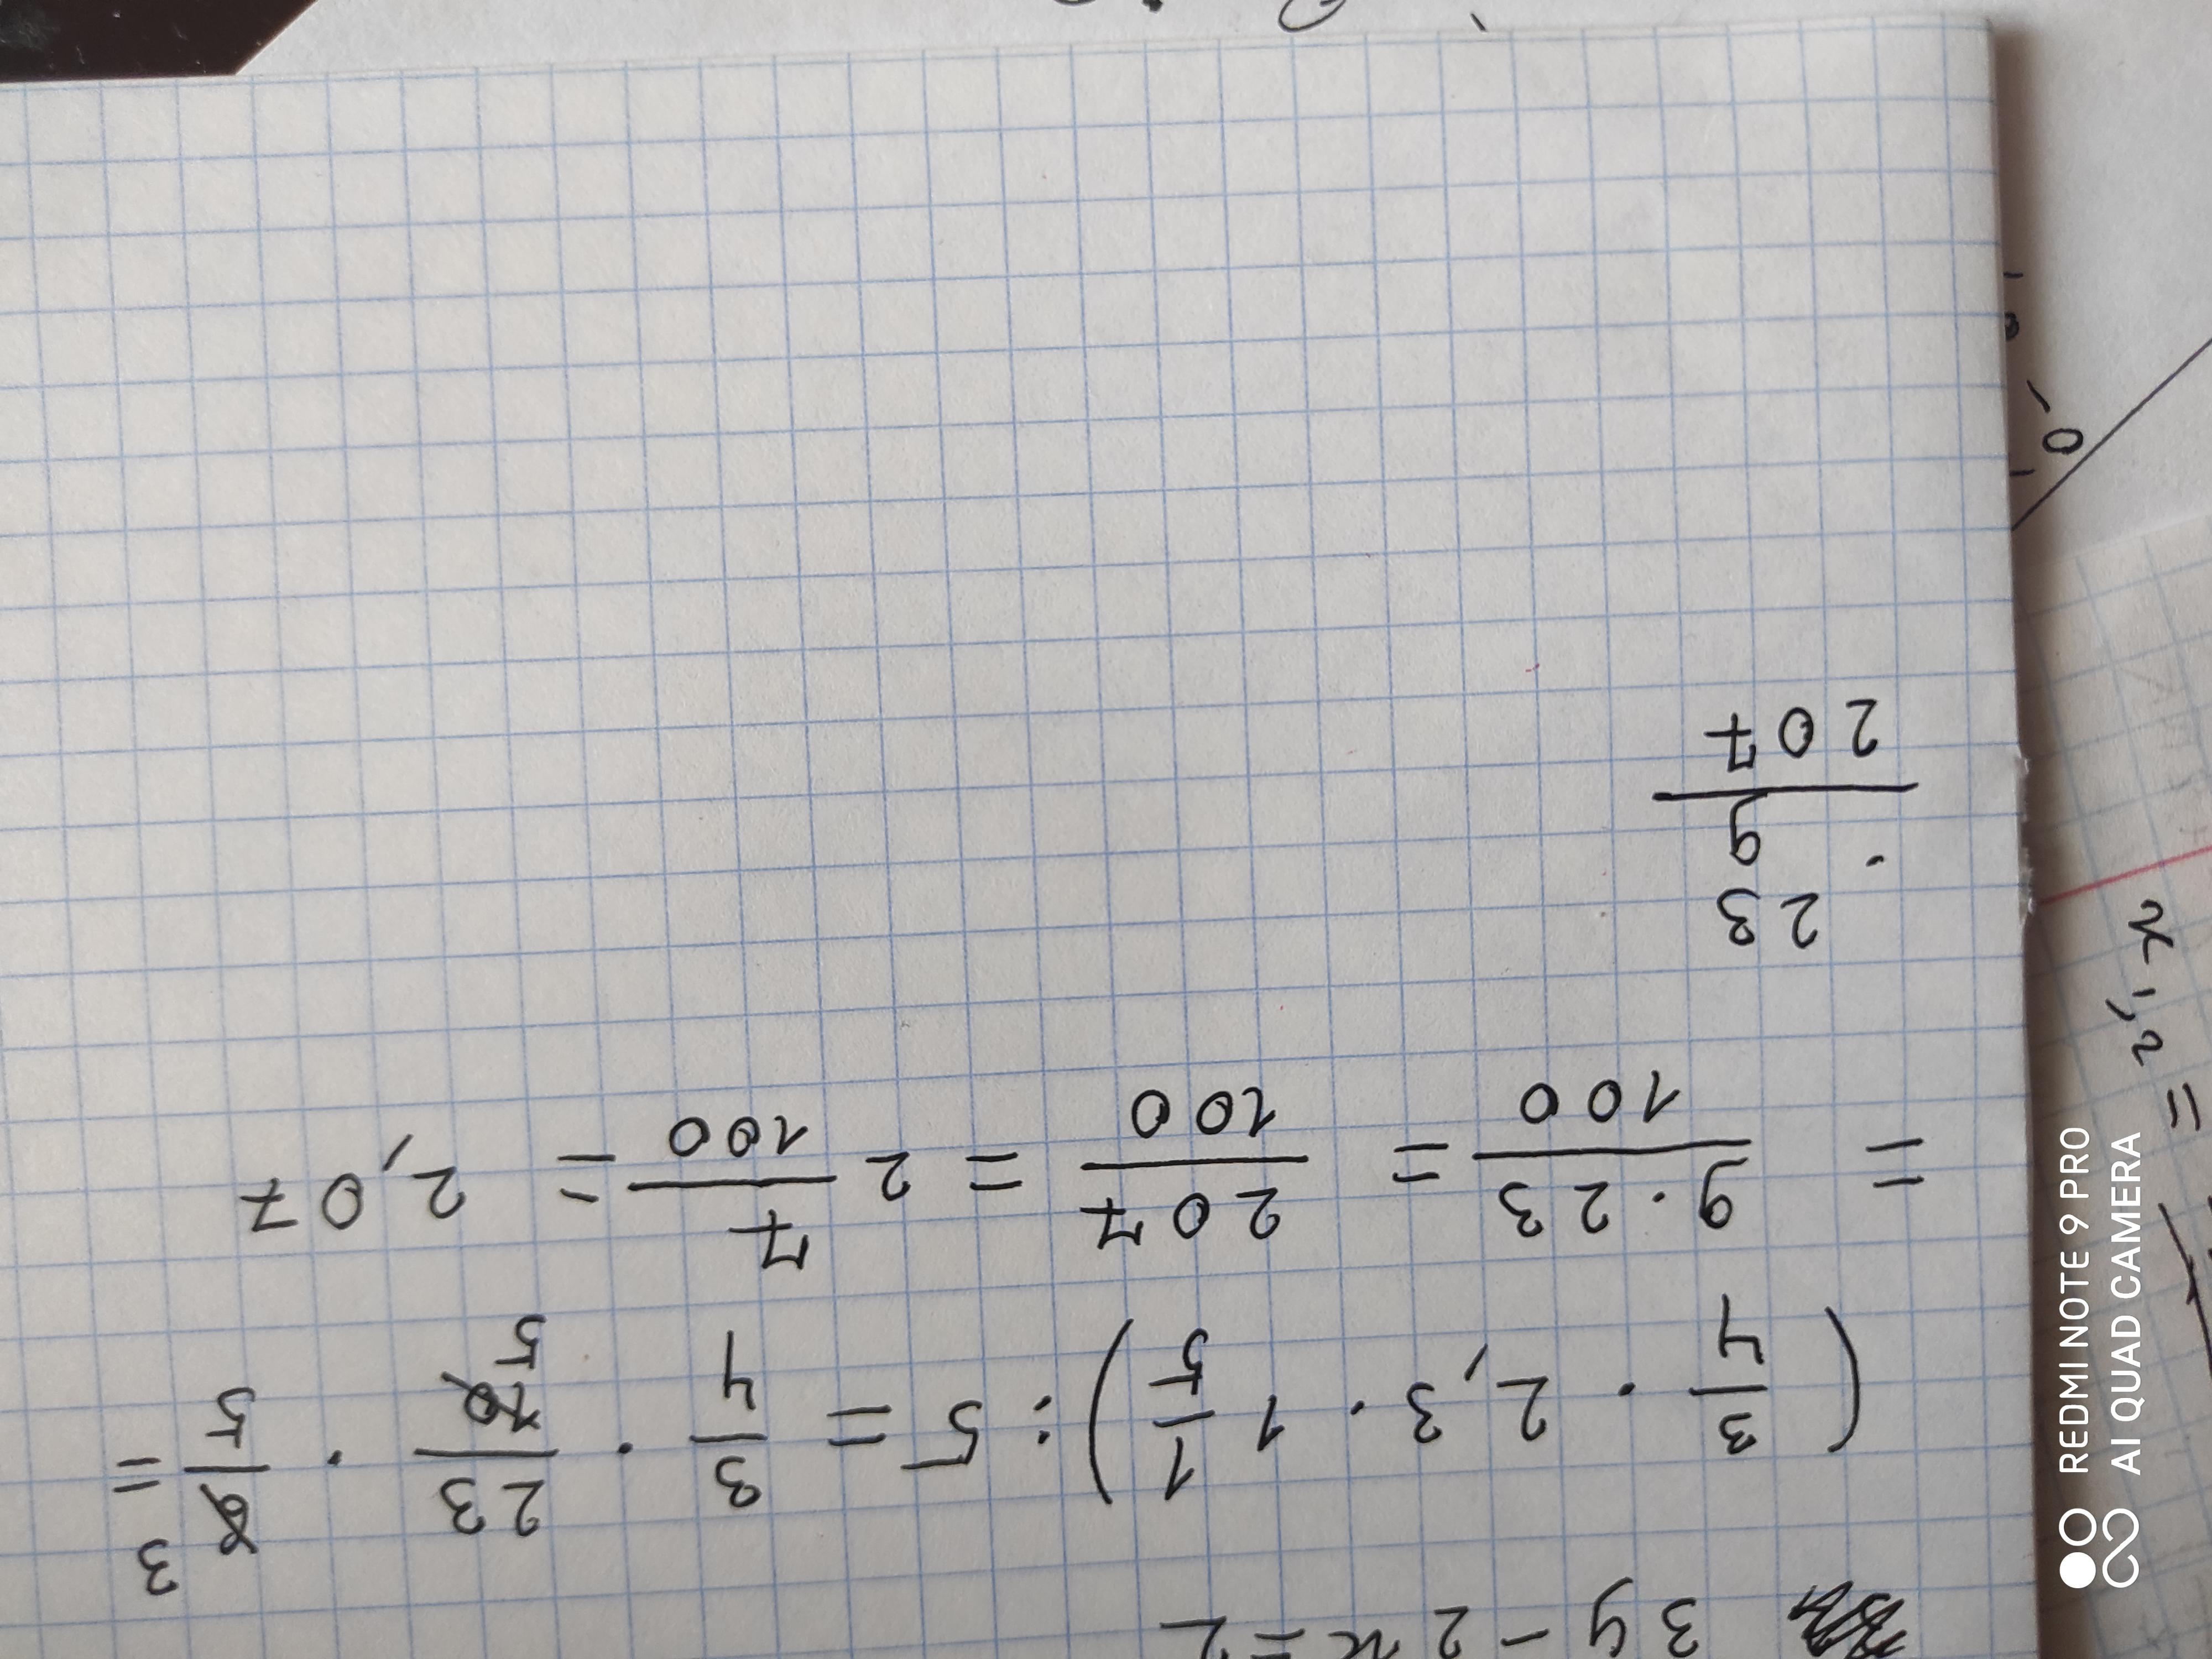 3y - 2x = 2
(3/4 · 2,3 · 1 1/5) : 5 = 3/4 · 23/10 5 · 6/5 3 =
= 9·23/100 = 207/100 = 2 7/100 = 2,07
23
· 9
207
REDMI NOTE 9 PRO
AI QUAD CAMERA